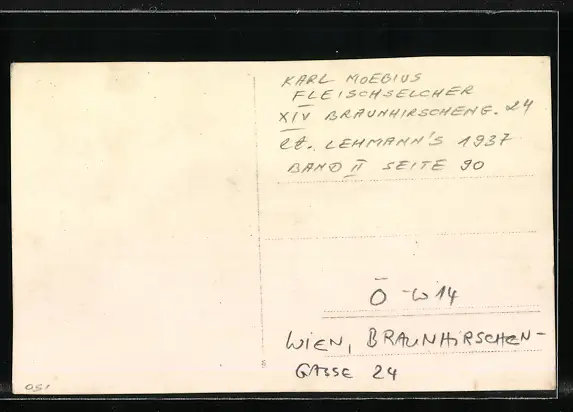 KARL MOEBIUS
FLEISCHSELCHER
XIV BRAUNHIRSCHENG. 24
lt. LEHMANN'S 1937
BAND II SEITE 90
Ö-W14
WIEN, BRAUNHIRSCHEN-
GASSE 24